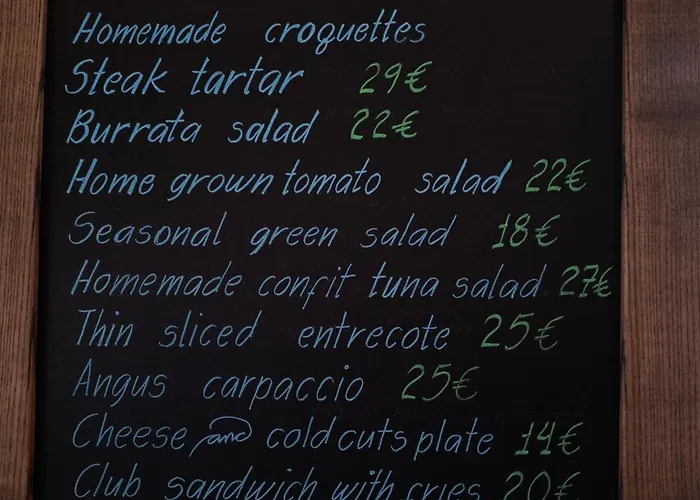 Homemade croquettes
Steak tartar 29€
Burrata salad 22€
Home grown tomato salad 22€
Seasonal green salad 18€
Homemade confit tuna salad 27€
Thin sliced entrecote 25€
Angus carpaccio 25€
Cheese and cold cuts plate 14€
Club sandwich with cries 20€